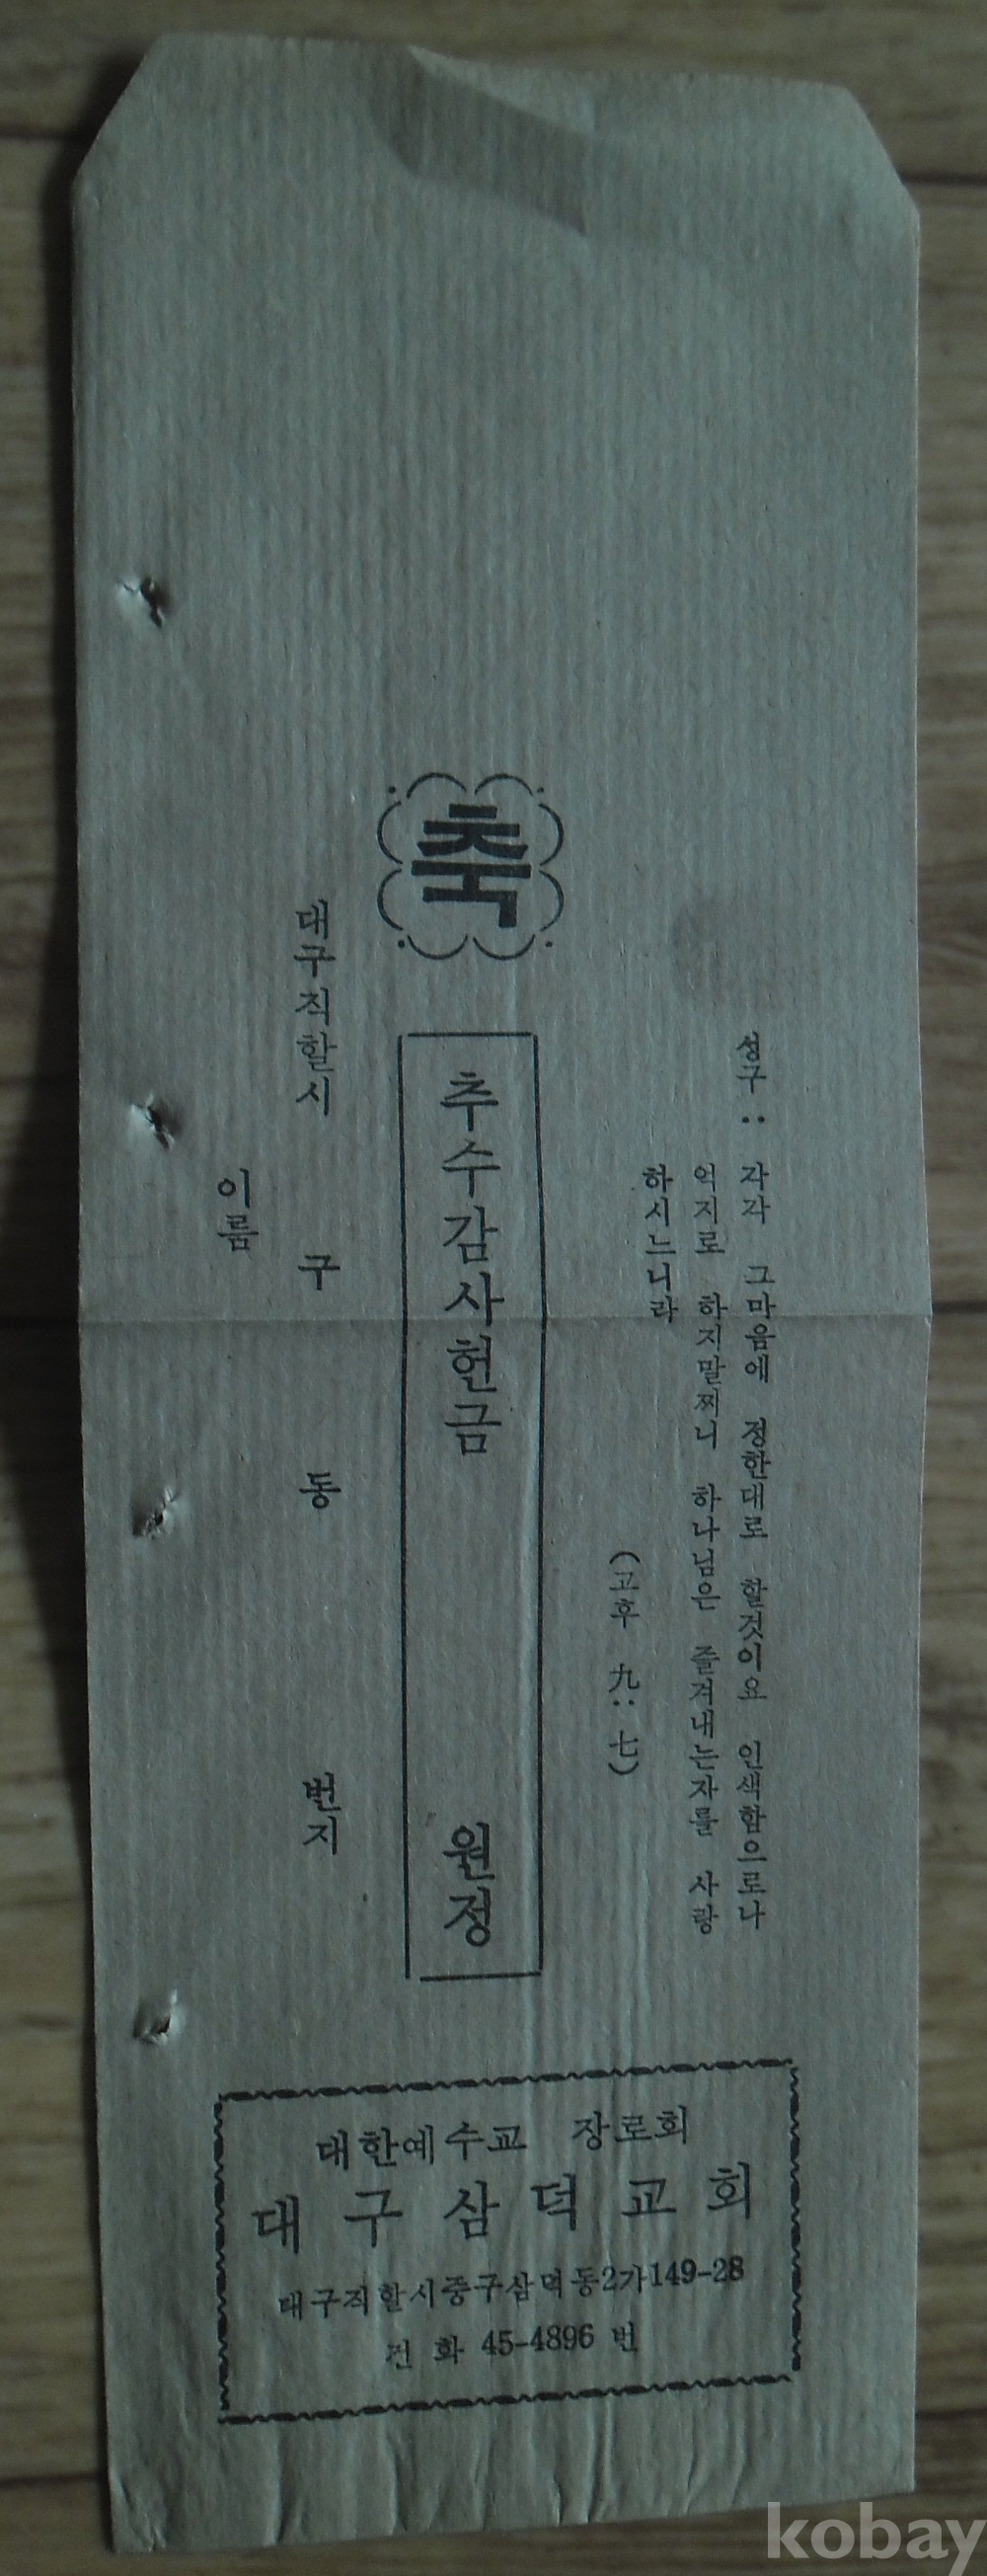 성구: 각각 그마음에 정한대로 할것이요 인색함으로나
억지로 하지말찌니 하나님은 즐겨내는자를 사랑
하시느니라
(고후 九:七)
축
추수감사헌금 원정
대구직할시 구 동 번지
이름
대한예수교 장로회
대구삼덕교회
대구직할시중구삼덕동2가149-28
전화 45-4896 번
kobay